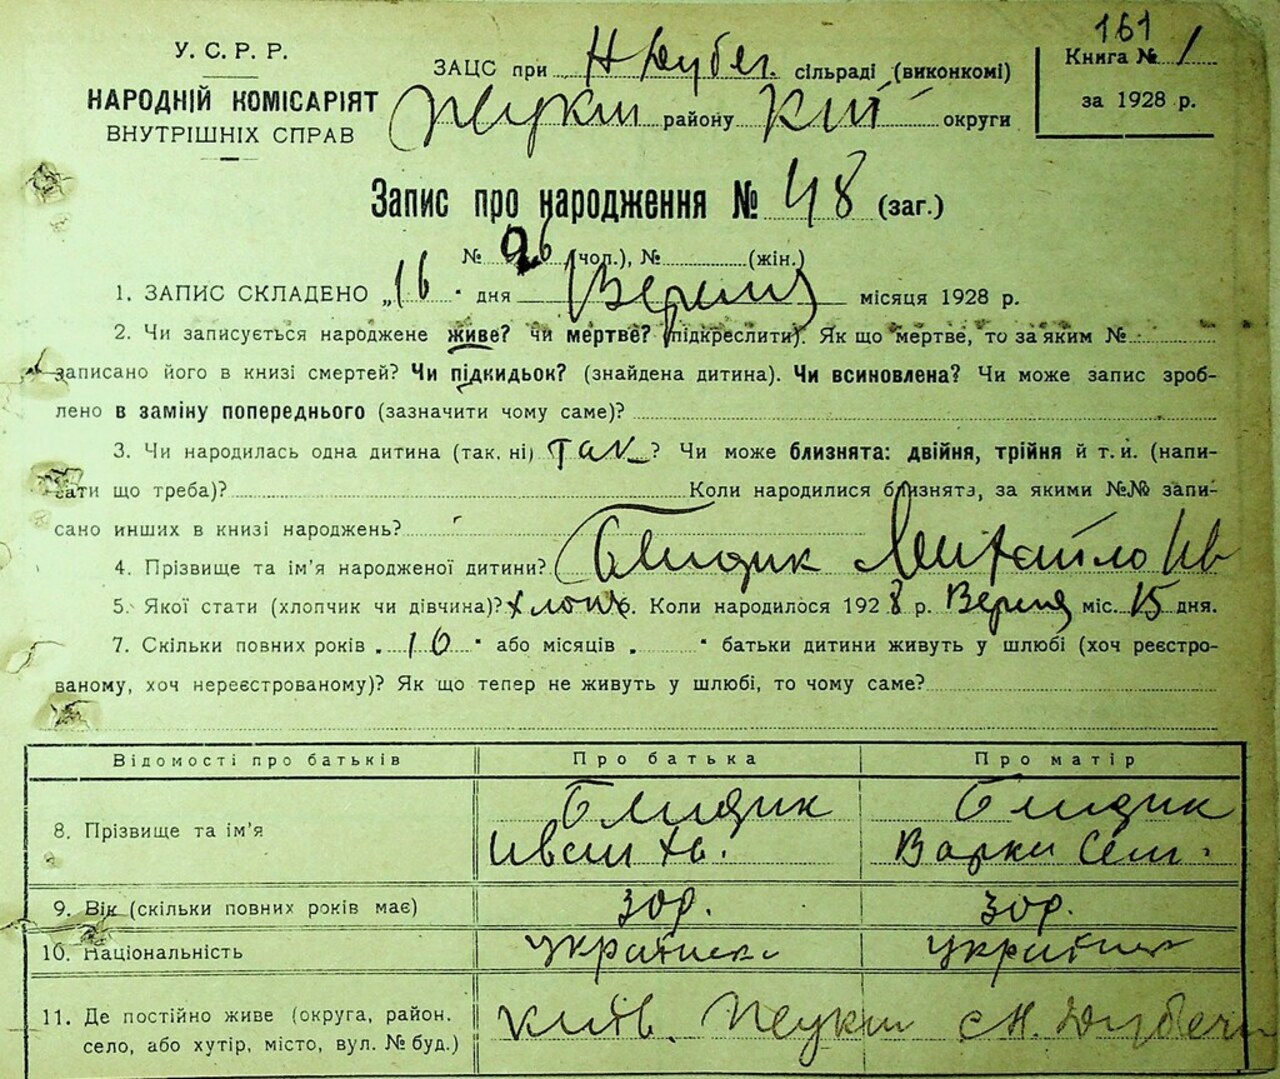 161
У. С. Р. Р.
НАРОДНІЙ КОМІСАРІЯТ
ВНУТРІШНІХ СПРАВ
ЗАЦС при Н Дубеч. сільраді (виконкомі)
району Киї округи
Книга № 1
за 1928 р.
Запис про народження № 48 (заг.)
№ 26 (чоп.), № (жін.)
1. ЗАПИС СКЛАДЕНО „16" дня Вересня місяця 1928 р.
2. Чи записується народжене живе? чи мертве? (підкреслити). Як що мертве, то за яким №
записано його в книзі смертей? Чи підкидьок? (знайдена дитина). Чи всиновлена? Чи може запис зроб-
лено в заміну попереднього (зазначити чому саме)?
3. Чи народилась одна дитина (так, ні) так? Чи може близнята: двійня, трійня й т. и. (напи-
сати що треба)? Коли народилися близнята, за якими №№ запи-
сано инших в книзі народжень?
4. Прізвище та ім'я народженої дитини? Блидик Михайло Ив
5. Якої стати (хлопчик чи дівчина)? хлопч. Коли народилося 1928 р. Вересня міс. 15 дня.
7. Скільки повних років „10" або місяців „ " батьки дитини живуть у шлюбі (хоч реєстро-
ваному, хоч нереєстрованому)? Як що тепер не живуть у шлюбі, то чому саме?
Відомості про батьків Про батька Про матір
8. Прізвище та ім'я Блидик Блидик
Иван Хв. Варка Сем.
9. Вік (скільки повних років має) 30 р. 30 р.
10. Національність
11. Де постійно живе (округа, район. Київ. с Н. Дубечн
село, або хутір, місто, вул. № буд.)